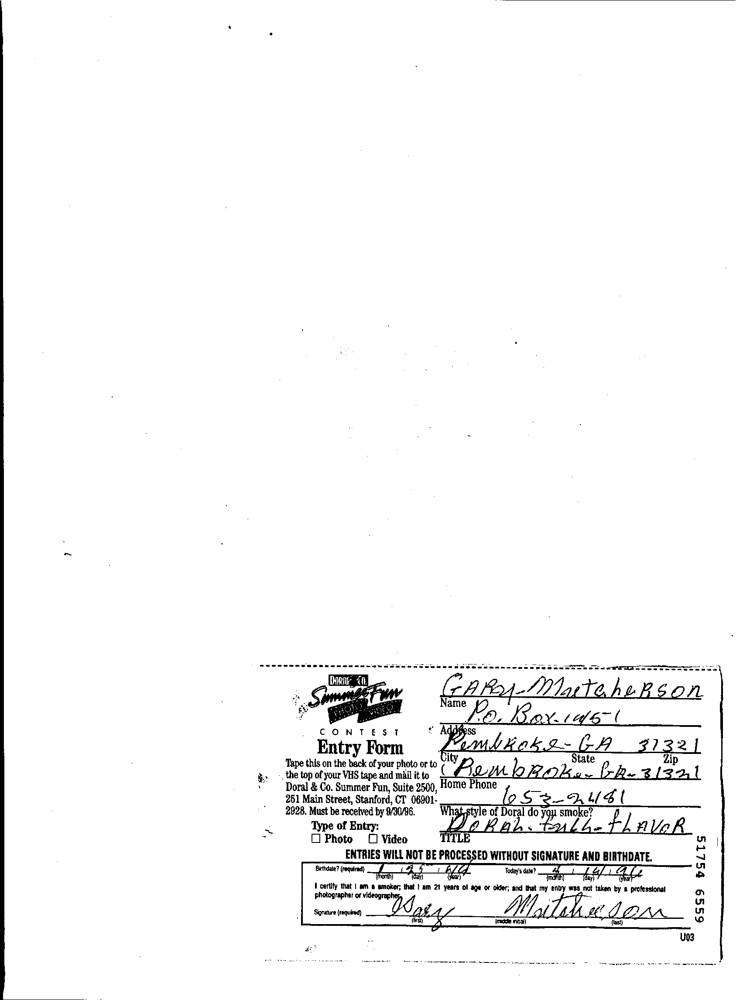 DORAL & CO.
Summer Fun
CONTEST
Entry Form
Tape this on the back of your photo or to
the top of your VHS tape and mail it to
Doral & Co. Summer Fun, Suite 2500,
251 Main Street, Stanford, CT 06901-
2928. Must be received by 9/30/96.
Type of Entry:
☐ Photo ☐ Video
GARY
Name
P.O. Box
Address
Pembroke - GA 31321
City State Zip
PemBROKe - GA - 31321
Home Phone
653-2481
What style of Doral do you smoke?
DORAL - FULL - FLAVOR
TITLE
ENTRIES WILL NOT BE PROCESSED WITHOUT SIGNATURE AND BIRTHDATE.
Birthdate? (required) Today's date?
(month) (day) (year) (month) (day) (year)
I certify that I am a smoker; that I am 21 years of age or older; and that my entry was not taken by a professional
photographer or videographer.
Signature (required) Gary
(first) (middle initial) (last)
U03
51754 6559